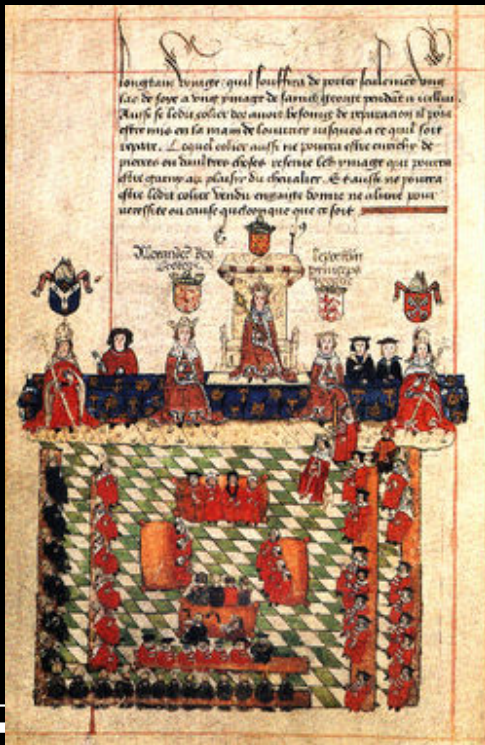 longtain voiage: quil souffira de porter seulement ung
lac de soye a ung ymage de george pendant a
Aussi se ledit colier auoit besoing de reparacion il
estre mis en la main de louurier iusques a ce quil soit
repare. Lequel colier aussi ne pourra estre enrichi de
pierres ou daultres choses reserue ymage que pourra
estre garny au plaisir du cheualier. Et aussi ne pourra
estre ledit colier vendu engaige donne ne aliene pour
necessite ou cause quelconque que ce soit
Alexander Rex
princeps